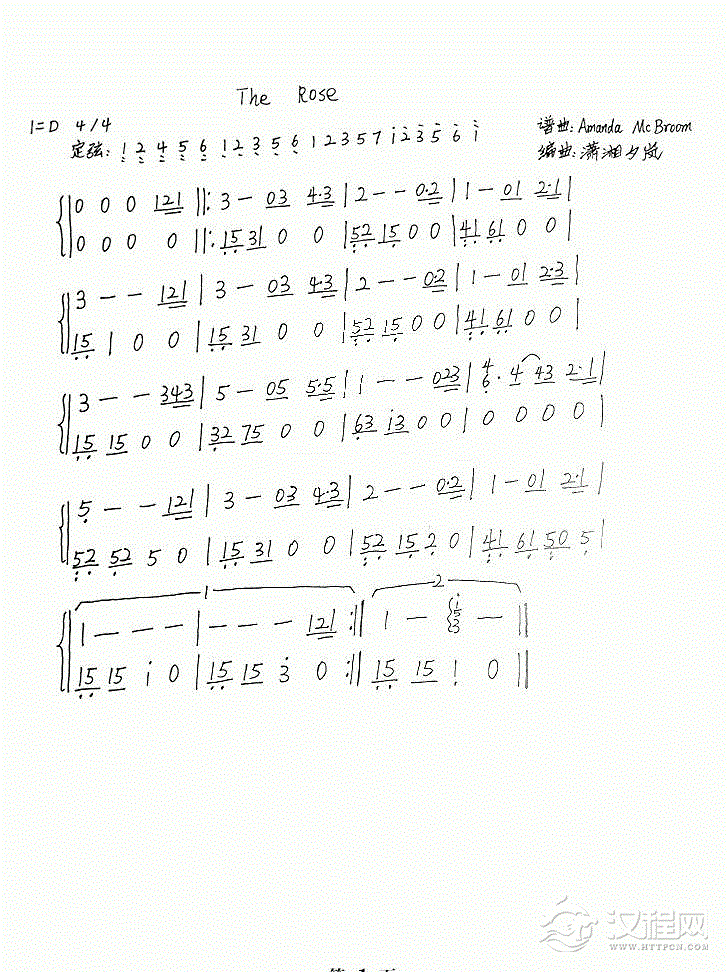 The Rose
1=D 4/4
谱曲: Amanda McBroom
定弦: 1 2 4 5 6 1 2 3 5 6 1 2 3 5 7 1 2 3 5 6 1
编曲: 潇湘夕岚
0 0 0 121 ‖: 3 - 03 4·3 | 2 - - 0·2 | 1 - 01 2·1 |
0 0 0 0 ‖: 15 31 0 0 | 52 15 0 0 | 41 61 0 0 |
3 - - 121 | 3 - 03 4·3 | 2 - - 0·2 | 1 - 01 2·3 |
15 1 0 0 | 15 31 0 0 | 52 15 0 0 | 41 61 0 0 |
3 - - 343 | 5 - 05 5·5 | 1 - - 023 | 4 6 · 4 43 2·1 |
15 15 0 0 | 32 75 0 0 | 63 i3 0 0 | 0 0 0 0 |
5 - - 121 | 3 - 03 4·3 | 2 - - 0·2 | 1 - 01 2·1 |
52 52 5 0 | 15 31 0 0 | 52 15 2 0 | 41 61 50 5 |
1 2
1 - - - | - - - 121 :‖ 1 - i 5 3 - ‖
15 15 i 0 | 15 15 3 0 :‖ 15 15 1 0 ‖
汉程网
WWW.HTTPCN.COM